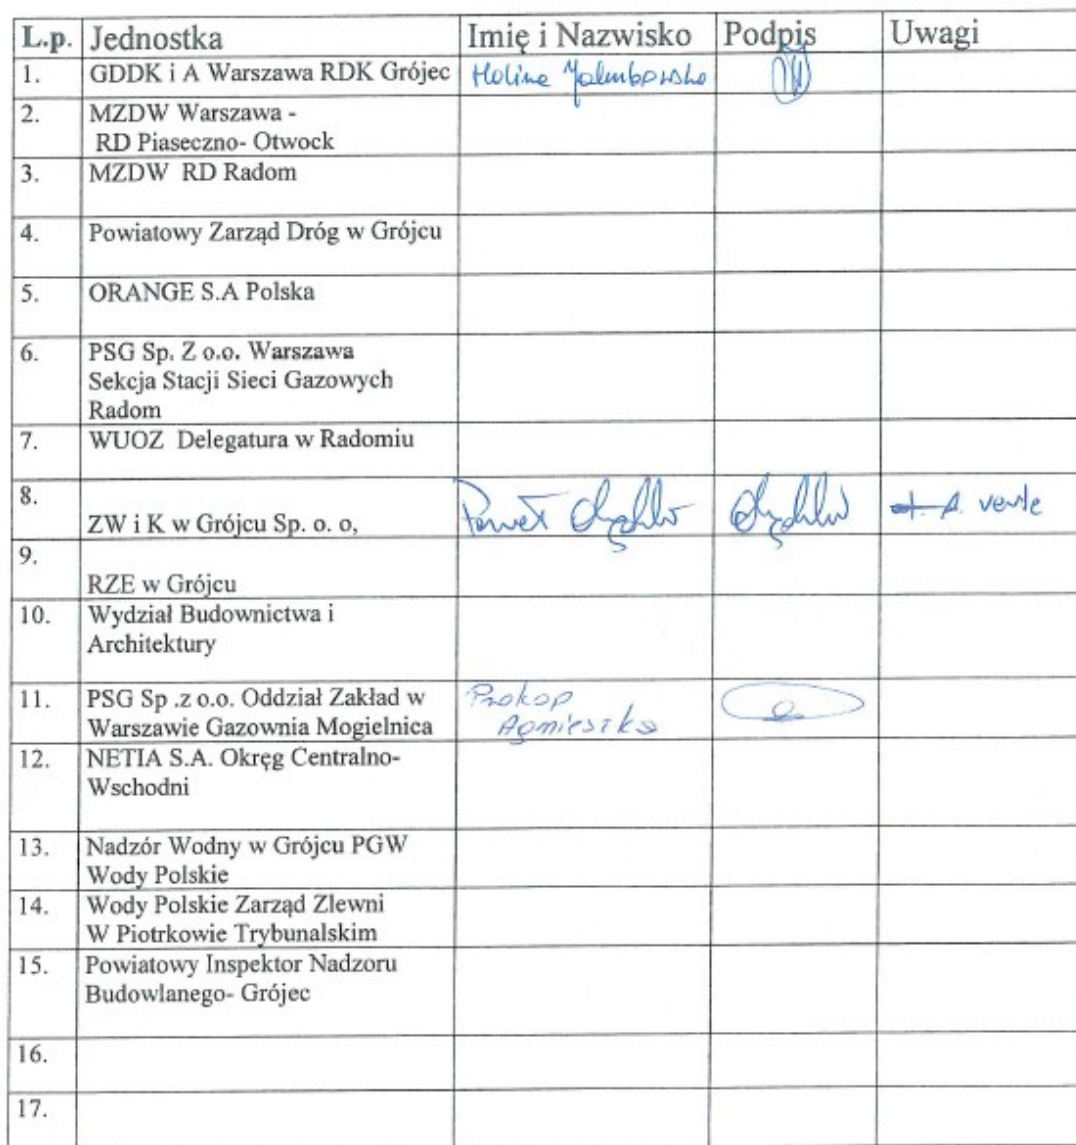 L.p. Jednostka Imię i Nazwisko Podpis Uwagi
1. GDDK i A Warszawa RDK Grójec
2. MZDW Warszawa -
RD Piaseczno- Otwock
3. MZDW RD Radom
4. Powiatowy Zarząd Dróg w Grójcu
5. ORANGE S.A Polska
6. PSG Sp. Z o.o. Warszawa
Sekcja Stacji Sieci Gazowych
Radom
7. WUOZ Delegatura w Radomiu
8.
ZW i K w Grójcu Sp. o. o, Paweł
9.
RZE w Grójcu
10. Wydział Budownictwa i
Architektury
11. PSG Sp .z o.o. Oddział Zakład w Prokop
Warszawie Gazownia Mogielnica Agnieszka
12. NETIA S.A. Okręg Centralno-
Wschodni
13. Nadzór Wodny w Grójcu PGW
Wody Polskie
14. Wody Polskie Zarząd Zlewni
W Piotrkowie Trybunalskim
15. Powiatowy Inspektor Nadzoru
Budowlanego- Grójec
16.
17.